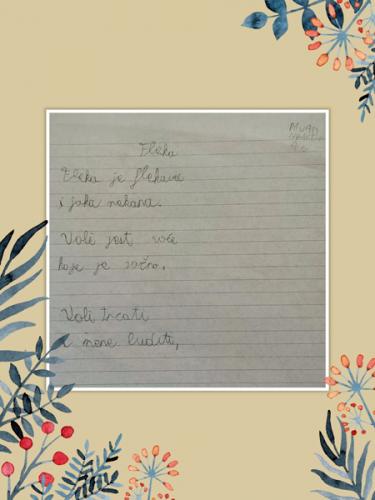 Fleka
Fleka je flekava
i jaka nekava.
Voli jest voće
koje je sočno.
Voli trcati
i mene buditi,